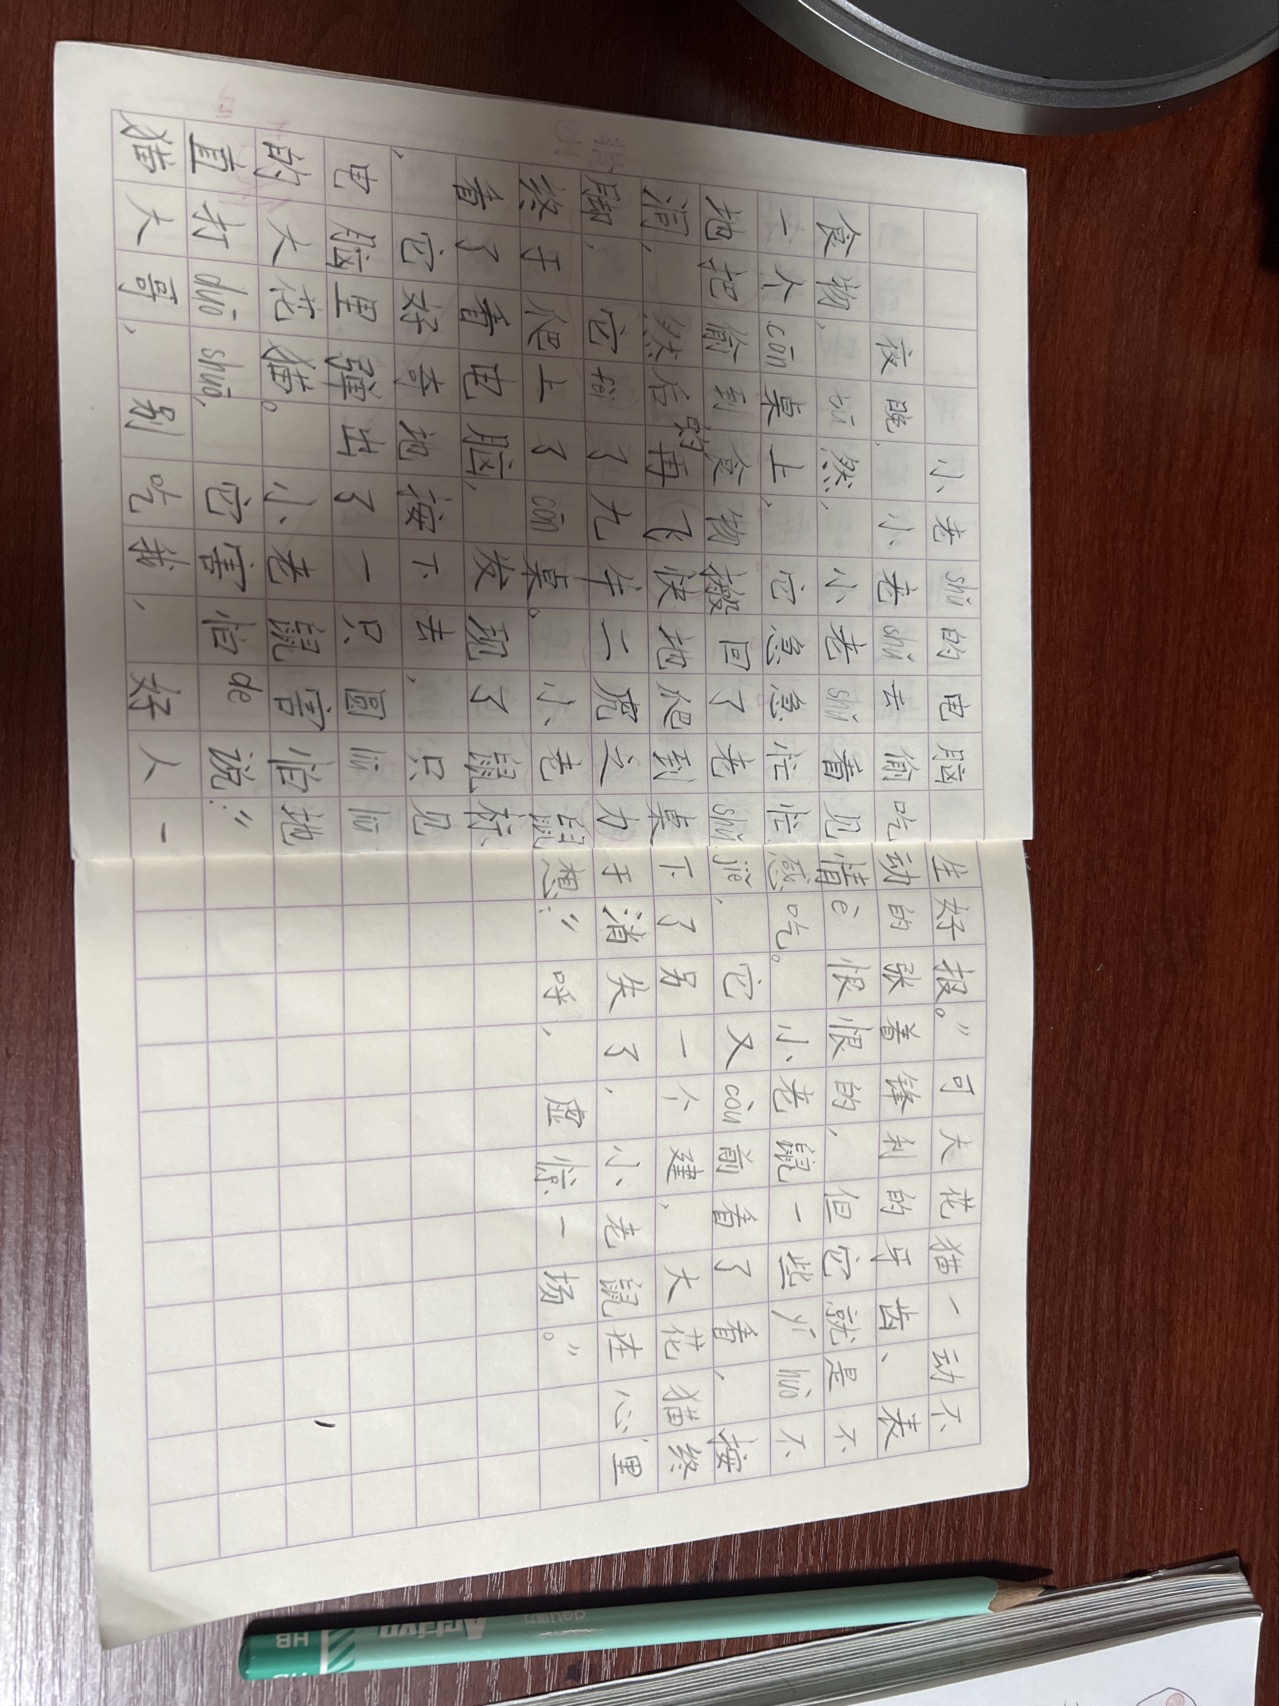 小老shǔ的电脑
夜晚，小老shǔ去偷吃
食物，tū然，小老shǔ看见
一个cān桌上，它急急忙忙
地把偷到的食物搬回了老shǔ
洞，然后再飞快地爬到桌
脚，它fèi了九牛二虎之力
终于爬上了cān桌。小老鼠
看了看电脑，发现了鼠标
，它好奇地按下去，只见
电脑里弹出了一只圆liū liū
的大花猫。小老鼠害怕地
直打duō shuō，它害怕de说：“
猫大哥，别吃我，好人一
生好报。”可大花猫一动不
动的张着锋利的牙齿、表
情è恨恨的，但它就是不
感吃。小老鼠一些yí huò不
jiě，它又còu前看了看，按
下了另一个建，大花猫终
于消失了，小老鼠在心里
想：“呼，虚惊一场。”
HB